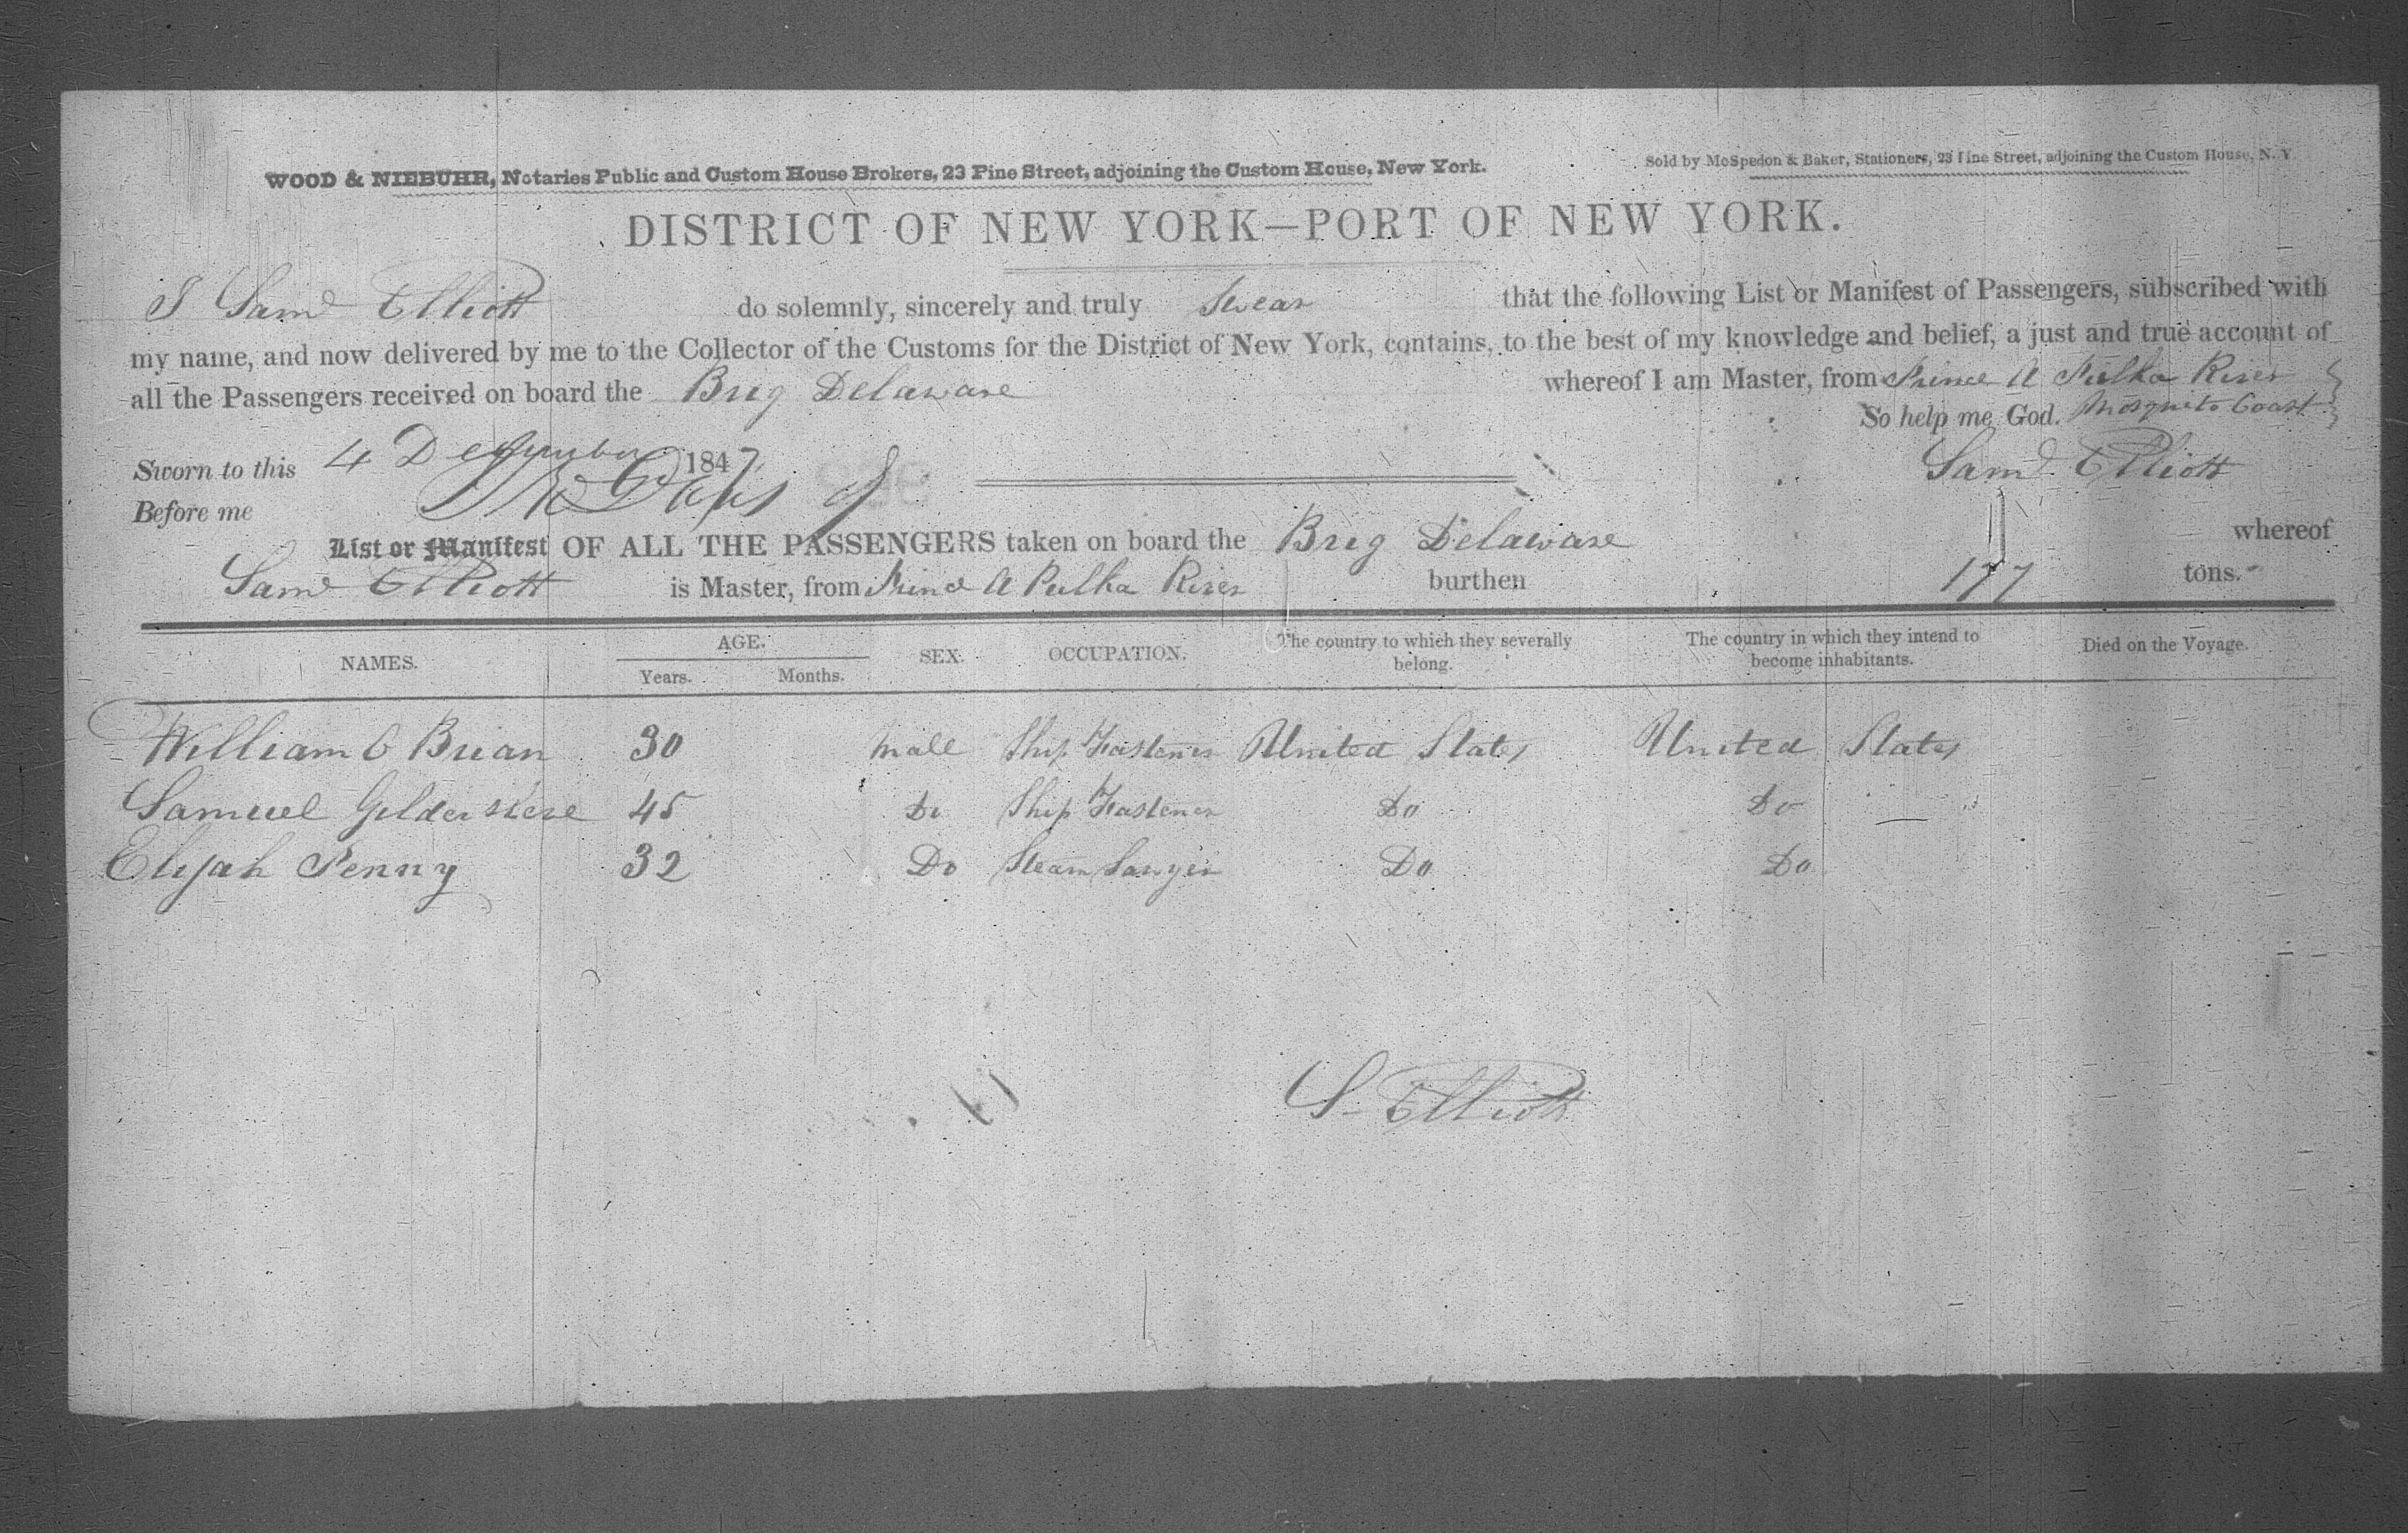 WOOD & NIEBUHR, Notaries Public and Custom House Brokers, 23 Pine Street, adjoining the Custom House, New York.
Sold by McSpedon & Baker, Stationers, 23 Pine Street, adjoining the Custom House, N. Y.
DISTRICT OF NEW YORK—PORT OF NEW YORK.
I Saml Elliott do solemnly, sincerely and truly Swear that the following List or Manifest of Passengers, subscribed with
my name, and now delivered by me to the Collector of the Customs for the District of New York, contains, to the best of my knowledge and belief, a just and true account of
all the Passengers received on board the Brig Delaware whereof I am Master, from Prince A Pulka River
So help me God. Mosquito Coast
Sworn to this 4 December 1847, Saml Elliott
Before me
List or Manifest OF ALL THE PASSENGERS taken on board the Brig Delaware whereof
Saml Elliott is Master, from Prince A Pulka River burthen 177 tons.
NAMES. AGE. SEX. OCCUPATION. The country to which they severally belong. The country in which they intend to become inhabitants. Died on the Voyage.
Years. Months.
William O Brian 30 Male Ship Fastener United States United States
Samuel 45 Do Ship Fastener Do Do
Elijah Penny 32 Do Steam Sawyer Do Do
S. Elliott